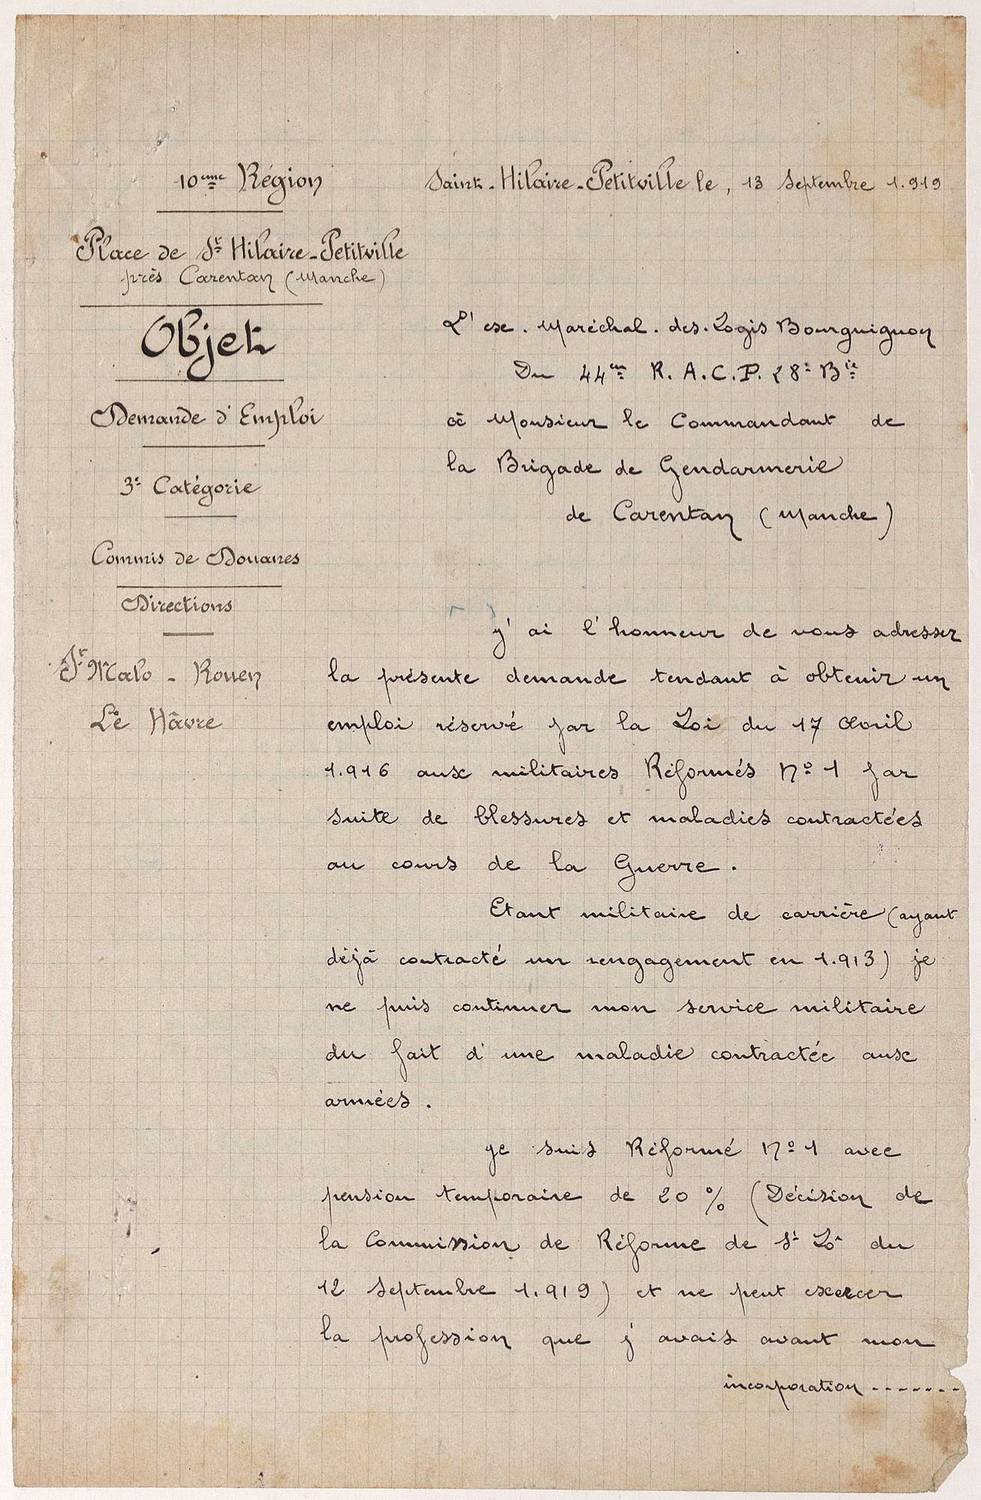 10eme Région
Place de St Hilaire-Petitville
près Carentan (Manche)
Objet
Demande d'Emploi
3e Catégorie
Commis de Douanes
Directions
St Malo - Rouen
Le Hâvre
Saint-Hilaire-Petitville le, 13 Septembre 1.919
L'ex. Maréchal. des. Logis Bourguignon
Du 44eme R.A.C.P. 28e Bie
à Monsieur le Commandant de
la Brigade de Gendarmerie
de Carentan (Manche)
J'ai l'honneur de vous adresser
la présente demande tendant à obtenir un
emploi réservé par la Loi du 17 Avril
1.916 aux militaires Réformés No 1 par
suite de blessures et maladies contractées
au cours de la Guerre.
Etant militaire de carrière (ayant
déjà contracté un rengagement en 1.913) je
ne puis continuer mon service militaire
du fait d'une maladie contractée aux
armées.
Je suis Réformé No 1 avec
pension temporaire de 20 % (Décision de
la Commission de Réforme de St Lô du
12 Septembre 1.919) et ne peut exercer
la profession que j'avais avant mon
incorporation -------